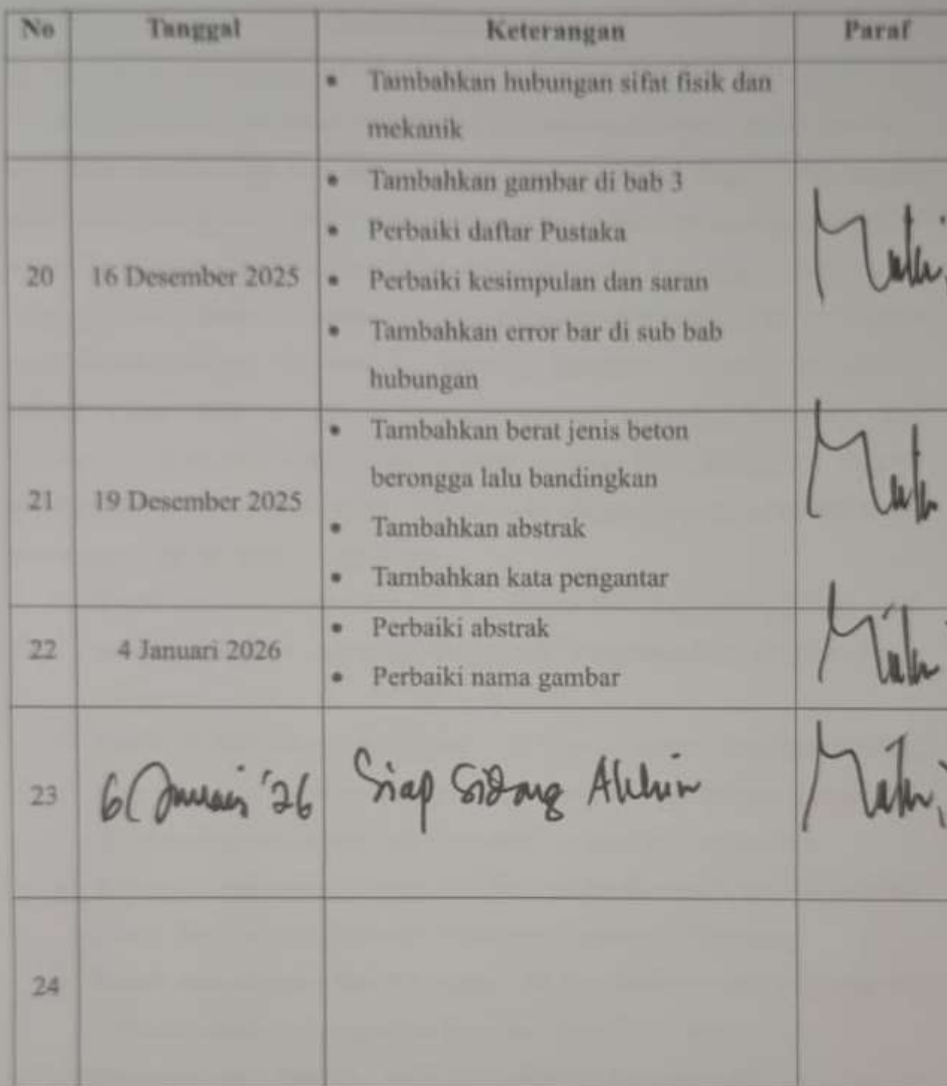 No Tanggal Keterangan Paraf
• Tambahkan hubungan sifat fisik dan
mekanik
20 16 Desember 2025
• Tambahkan gambar di bab 3
• Perbaiki daftar Pustaka
• Perbaiki kesimpulan dan saran
• Tambahkan error bar di sub bab
hubungan
21 19 Desember 2025
• Tambahkan berat jenis beton
berongga lalu bandingkan
• Tambahkan abstrak
• Tambahkan kata pengantar
22 4 Januari 2026
• Perbaiki abstrak
• Perbaiki nama gambar
23 6 Januari '26 Siap Sidang Akhir
24